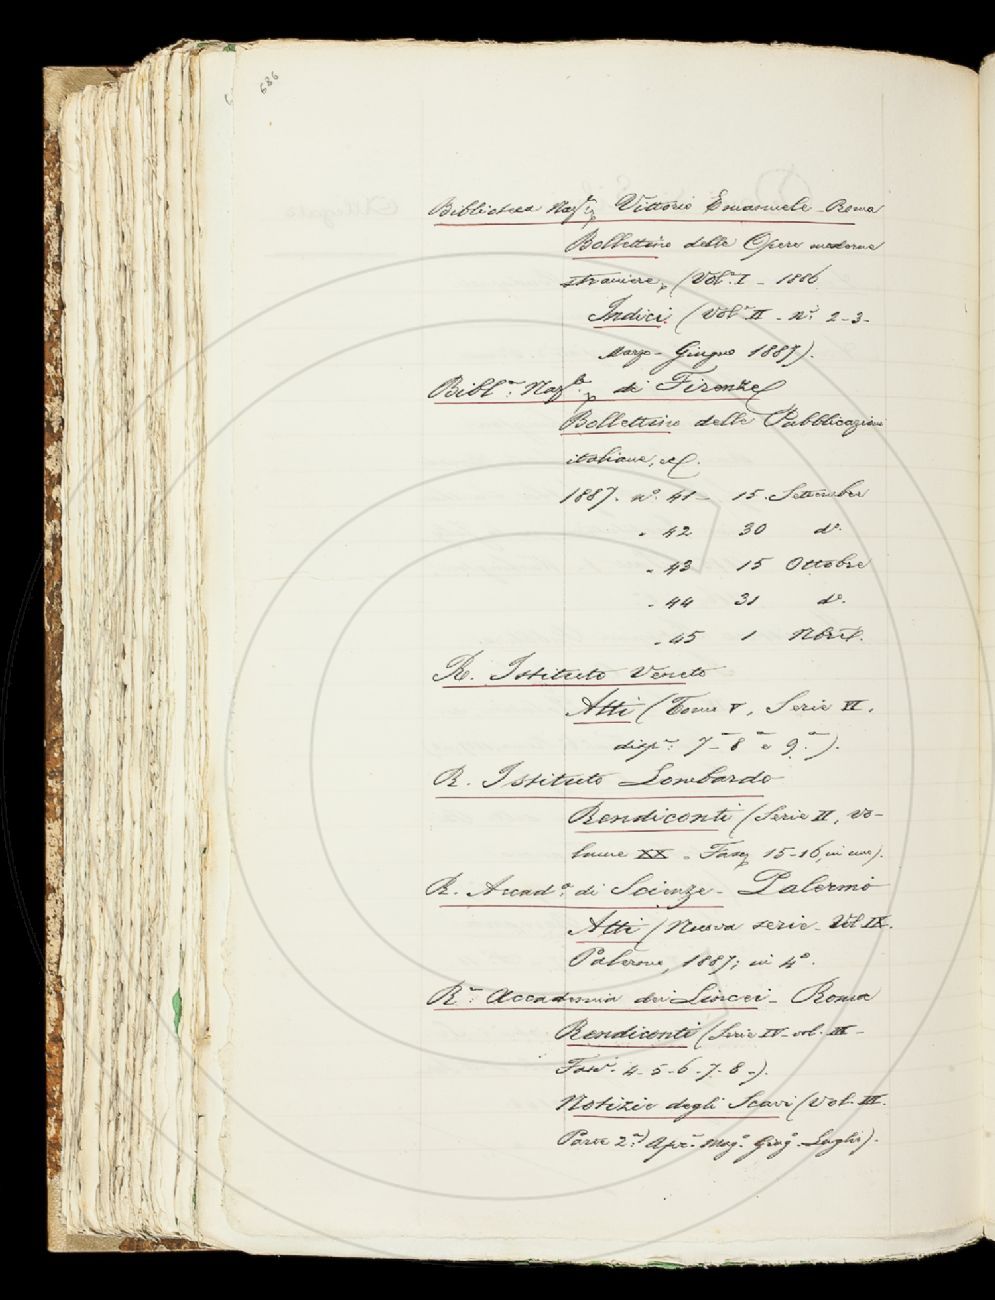 686
Biblioteca Nazle Vittorio Emanuele - Roma
Bollettino delle Opere moderne
straniere, (Vol. I - 1886
Indici (Vol. II - n.i 2-3-
Marzo - Giugno 1887).
Bibl.a Nazle di Firenze
Bollettino delle Pubblicazioni
italiane, ecc.
1887. n.o 41 - 15. Settembre
" 42 30 do.
" 43 15 Ottobre
" 44 31 do.
" 45 1 Nbre.
R. Istituto Veneto
Atti (Tomo V, Serie VI,
disp.e 7-8 e 9.a).
R. Istituto Lombardo
Rendiconti (Serie II, vo-
lume XX - Fasc 15-16, in uno).
R. Accad.a di Scienze - Palermo
Atti (Nuova serie - Vol IX.
Palermo, 1887; in 4o.
R.a Accademia dei Lincei - Roma
Rendiconti (Serie IV - vol. III -
Fasc. 4-5-6-7-8-).
Notizie degli Scavi (Vol. III.
Parte 2.a) Apr. Mag.o Giug.o Luglio).